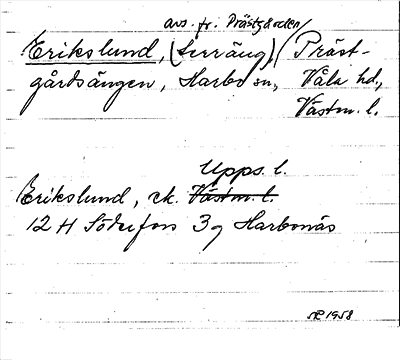 avs. fr. Prästgården/
Erikslund, (Lerräng)/ Präst-
gårdsängen, Harbo sn, Våla hd,
Västm. l.
Upps. l.
Erikslund, ek. Västm. l.
12 H Söderfors 3g Harbonäs
1958